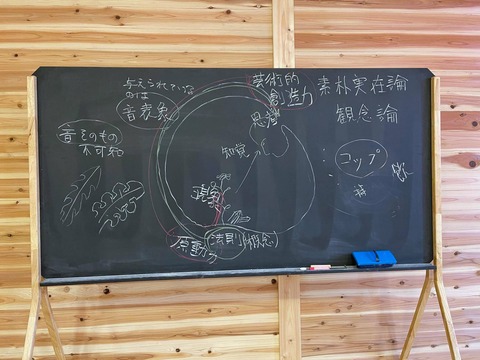 与えられている
のは
音表象
音そのもの
不可知
芸術的
創造力
思考
知覚
現象
原動力
法則(概念)
素朴実在論
観念論
コップ